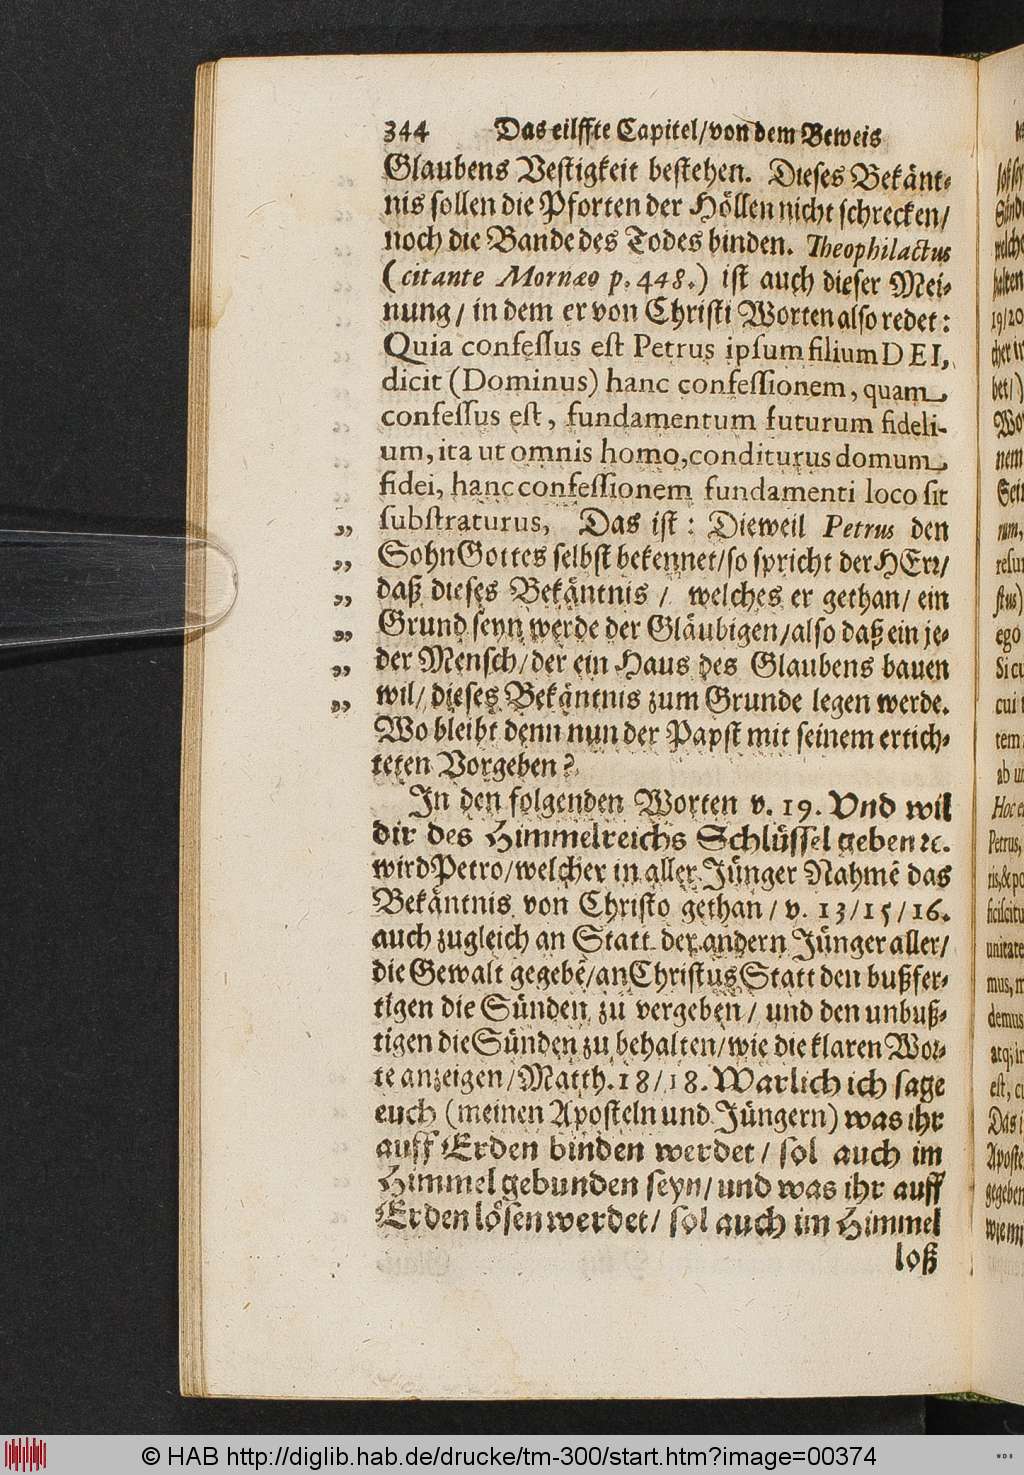 344 Das eilffte Capitel/von dem Beweis
Glaubens Vestigkeit bestehen. Dieses Bekänt-
nis sollen die Pforten der Höllen nicht schrecken/
noch die Bande des Todes binden. Theophilactus
(citante Mornæo p. 448.) ist auch dieser Mei-
nung/ in dem er von Christi Worten also redet:
Quia confessus est Petrus ipsum filium DEI,
dicit (Dominus) hanc confessionem, quam
confessus est, fundamentum futurum fideli-
um, ita ut omnis homo, conditurus domum
fidei, hanc confessionem fundamenti loco sit
„ substraturus, Das ist: Dieweil Petrus den
„ Sohn Gottes selbst bekennet/so spricht der HErr/
„ daß dieses Bekäntnis / welches er gethan/ ein
„ Grund seyn werde der Gläubigen/also daß ein je-
„ der Mensch/der ein Haus des Glaubens bauen
„ wil/ dieses Bekäntnis zum Grunde legen werde.
Wo bleibt denn nun der Papst mit seinem ertich-
teten Vorgeben?
In den folgenden Worten v. 19. Und wil
dir des Himmelreichs Schlüssel geben ꝛc.
wird Petro/welcher in aller Jünger Nahmē das
Bekäntnis von Christo gethan / v. 13/15/16.
auch zugleich an Statt der andern Jünger aller/
die Gewalt gegebē/an Christus Statt den bußfer-
tigen die Sünden zu vergeben/ und den unbuß-
tigen die Sünden zu behalten/wie die klaren Wor-
te anzeigen/Matth. 18/18. Warlich ich sage
euch (meinen Aposteln und Jüngern) was ihr
auff Erden binden werdet/ sol auch im
Himmel gebunden seyn/ und was ihr auff
Erden lösen werdet/ sol auch im Himmel
loß
19/20
bet/)
nem
ego
cui
Petrus,
unitate
mus,
demus
est,
Das
gegeben
© HAB http://diglib.hab.de/drucke/tm-300/start.htm?image=00374